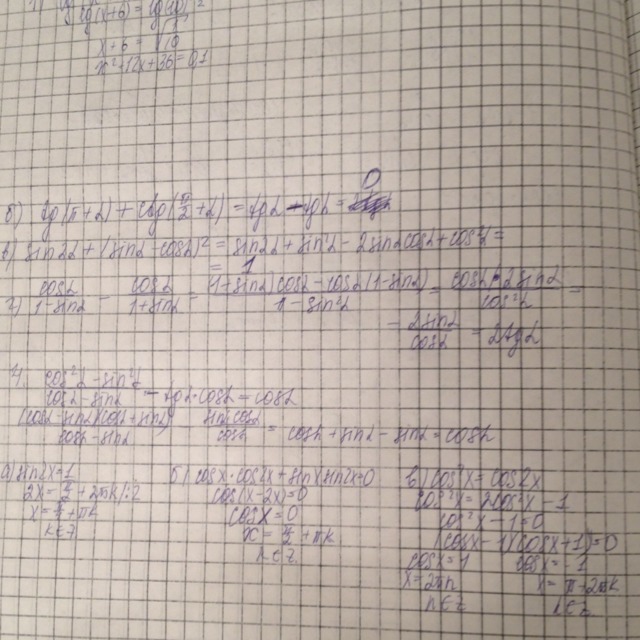 lg(x+6) = 
x+6 = √10
x²+12x+36 = 0,1
б) tg(π+α) + ctg(π/2+α) = tgα - tgα = 0
в) sin2α + (sinα - cosα)² = sin2α + sin²α - 2sinαcosα + cos²α =
= 1
г) cosα/(1-sinα) - cosα/(1+sinα) = ((1+sinα)cosα - cosα(1-sinα))/(1-sin²α) = cosα·2sinα/cos²α =
= 2sinα/cosα = 2tgα
4. (cos²α - sin²α)/(cosα - sinα) - tgα·cosα = cosα
(cosα - sinα)(cosα + sinα)/(cosα - sinα) sinα·cosα/cosα = cosα + sinα - sinα = cosα
а) sin2x = 1
2x = π/2 + 2πk /:2
x = π/4 + πk
k∈z
б) cosx·cos2x + sinx sin2x = 0
cos(x-2x) = 0
cosx = 0
x = π/2 + πk
k∈z
в) cos²x = cos2x
cos²x = 2cos²x - 1
cos²x - 1 = 0
(cosx - 1)(cosx + 1) = 0
cosx = 1 cosx = -1
x = 2πn x = π - 2πk
n∈z k∈z